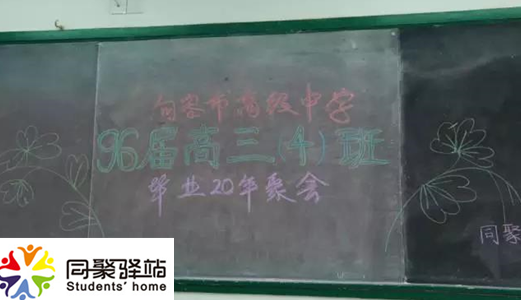 句容市高级中学
96届高三(4)班
毕业20年聚会
同聚
同聚驿站
Students' home